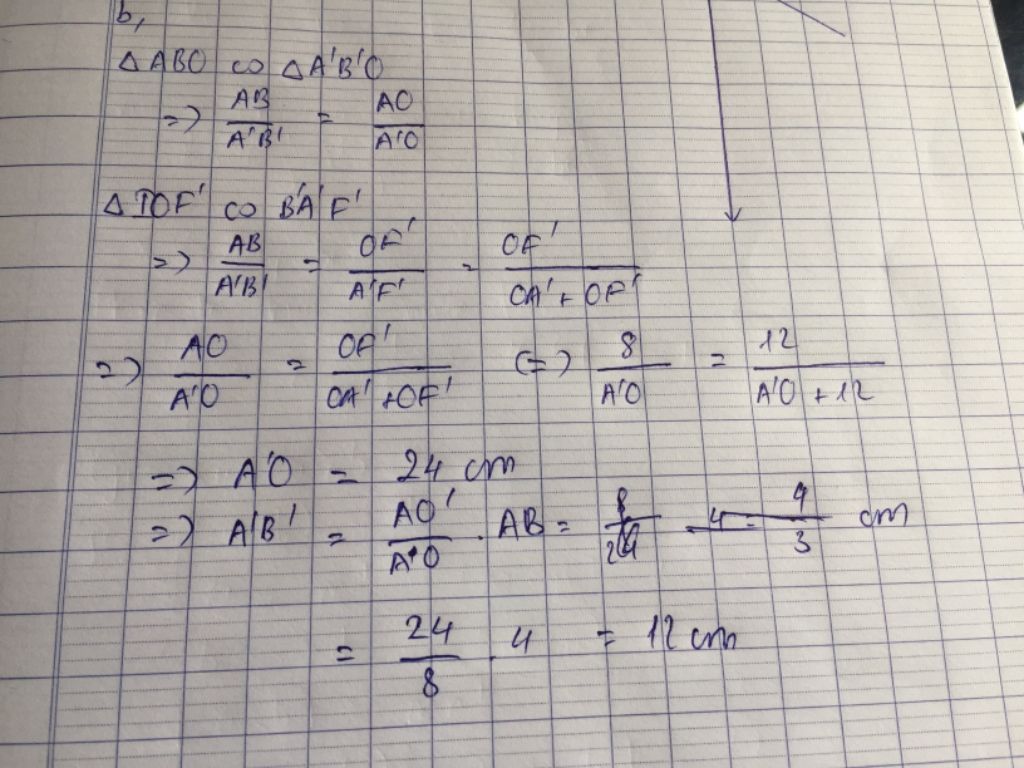 b,
△ABO ∽ △A'B'O
=> AB/A'B' = AO/A'O
△IOF' ∽ B'A'F'
=> AB/A'B' = OF'/A'F' = OF'/OA' + OF'
=> AO/A'O = OF'/OA' + OF' (=> 8/A'O = 12/A'O + 12
=> A'O = 24 cm
=> A'B' = AO'/A'O . AB = 8/24 . 4 = 4/3 cm
= 24/8 . 4 = 12 cm